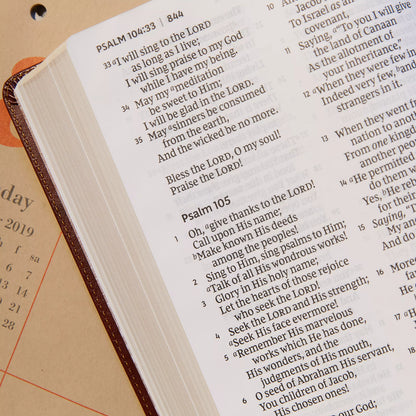 PSALM 104:33 | 844
33 ᵃI will sing to the LORD
as long as I live;
I will sing praise to my God
while I have my being.
34 May my ᵃmeditation
be sweet to Him;
I will be glad in the LORD.
35 May ᵃsinners be consumed
from the earth,
And the wicked be no more.
Bless the LORD, O my soul!
Praise the LORD!
Psalm 105
1 Oh, ᵃgive thanks to the LORD!
Call upon His name;
ᵇMake known His deeds
among the peoples!
2 Sing to Him, sing psalms to Him;
ᵃTalk of all His wondrous works!
3 Glory in His holy name;
Let the hearts of those rejoice
who seek the LORD!
4 Seek the LORD and His strength;
ᵃSeek His face evermore!
5 ᵃRemember His marvelous
works which He has done,
His wonders, and the
judgments of His mouth,
6 O seed of Abraham His servant,
You children of Jacob,
His chosen ones!
our God;
10
Jacob
To Israel as an
covenant,
11 Saying, ᵃ"To you I will give
the land of Canaan
As the allotment of
your inheritance,"
12 ᵃWhen they were few in
Indeed very few, ᵇand
strangers in it.
13 When they went
nation to another
From one kingdom
another people
14 ᵃHe permitted
do them
Yes, ᵇHe
for their
15 Saying,
My
And do
16 Moreo
17
18
day
r 2019
f sa